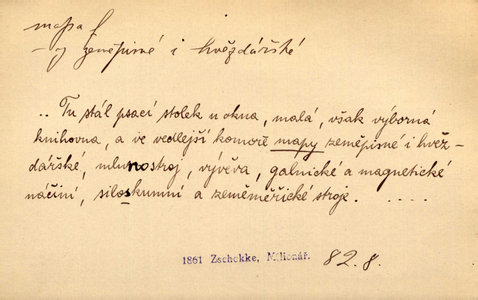 mapa f.
-y zeměpisné i hvězdářské
.. Tu stál psací stolek u okna, malá, však výborná
knihovna, a ve vedlejší komoře mapy zeměpisné i hvěz-
dářské, mlunostroj, vývěva, galnické a magnetické
náčiní, siloskumní a zeměměřické stroje. . . . . .
1861 Zschokke, Milionář. 82.8.